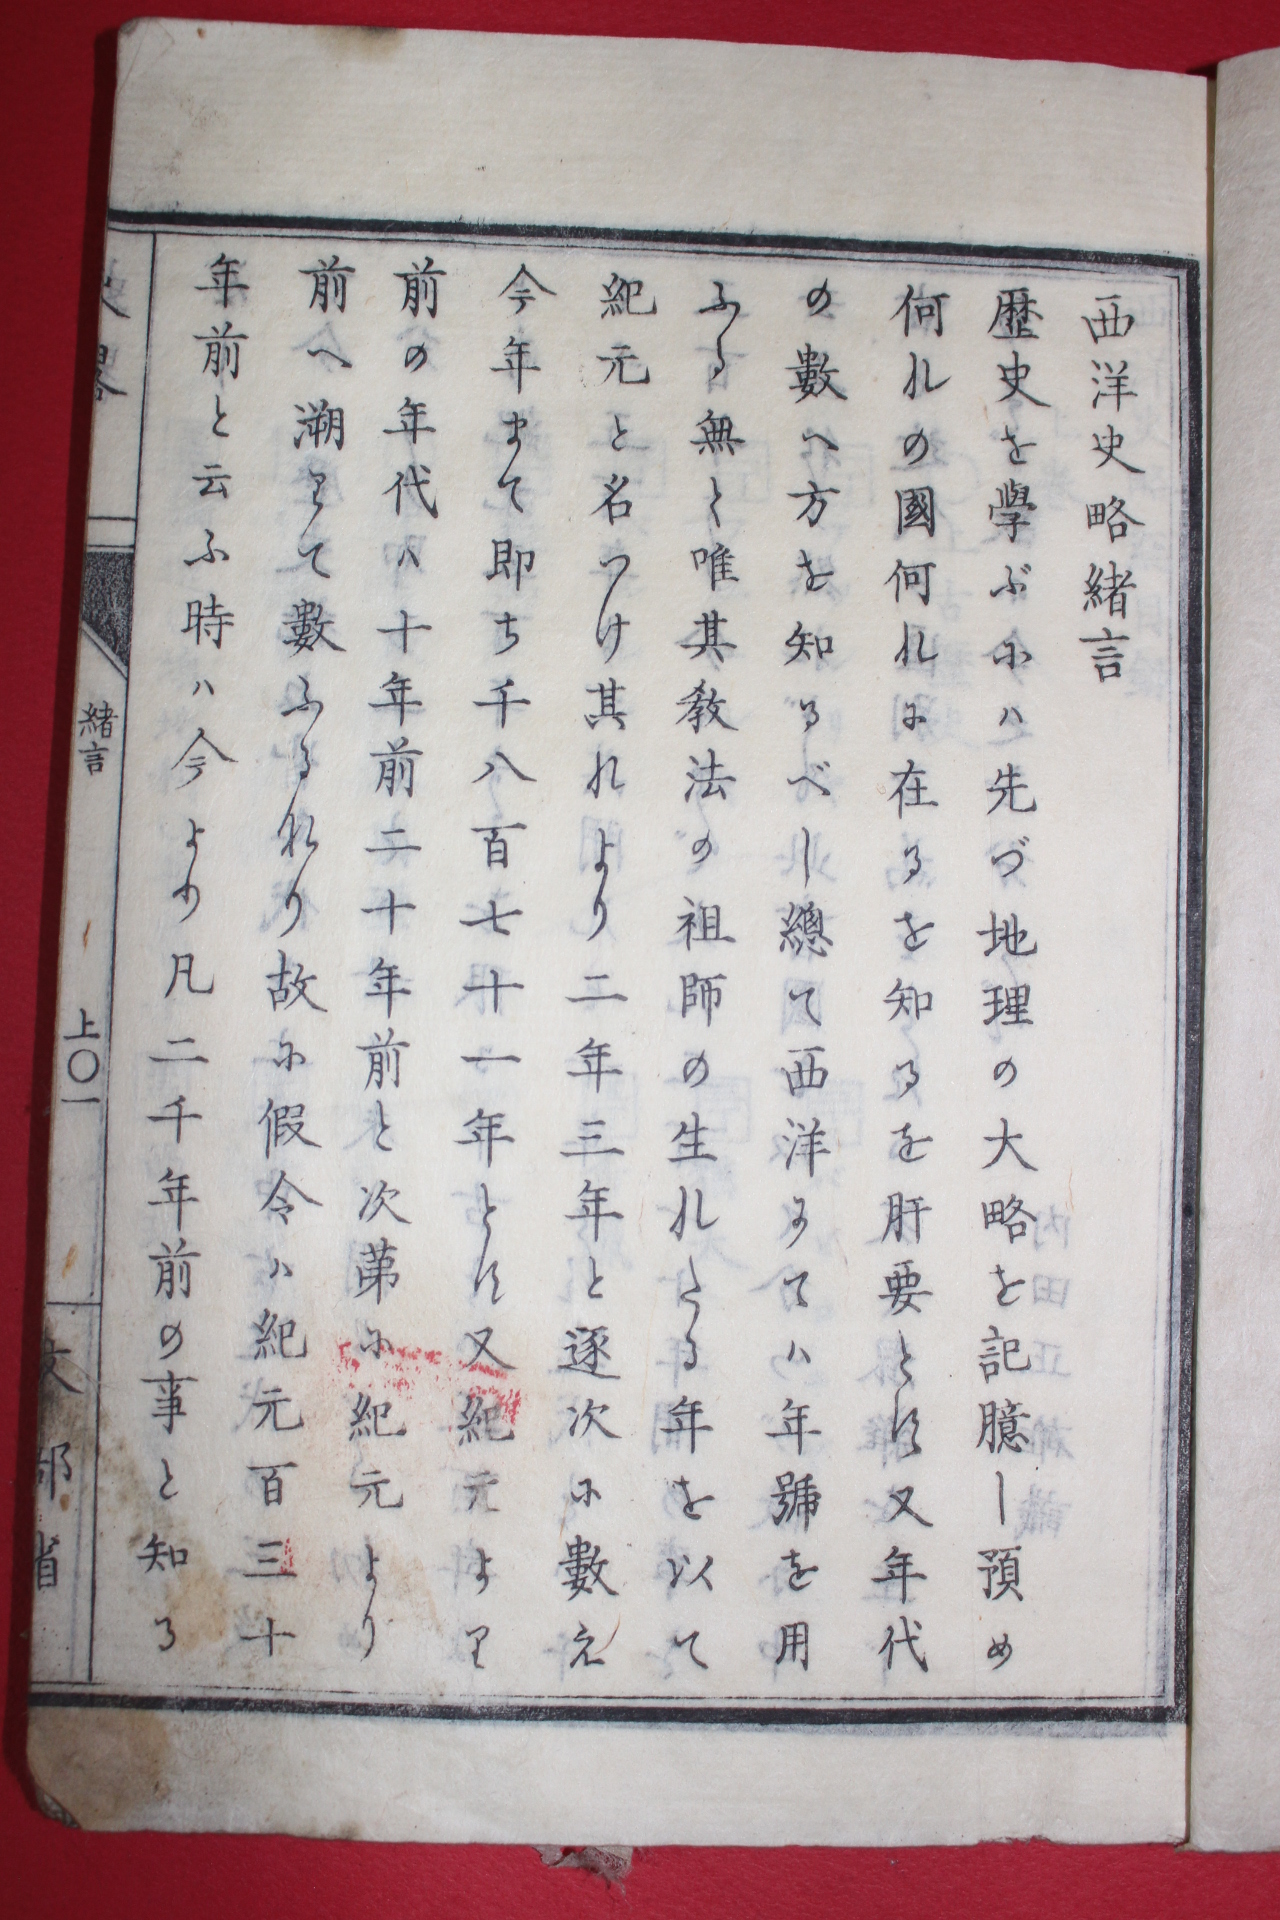 西洋史略緒言
歴史を學ぶにハ先づ地理の大略を記臆し預め
何れの國何れに在るを知るを肝要とす又年代
の數へ方を知るべし總て西洋にてハ年號を用
ふる無く唯其教法の祖師の生れたる年を以て
紀元と名つけ其れより二年三年と逐次に數え
今年まて即ち千八百七十一年とす又紀元より
前の年代ハ十年前二十年前と次第に紀元より
前へ溯りて數ふるなり故に假令ハ紀元百三十
年前と云ふ時ハ今より凡二千年前の事と知る
史畧
緒言
上〇一
文部省